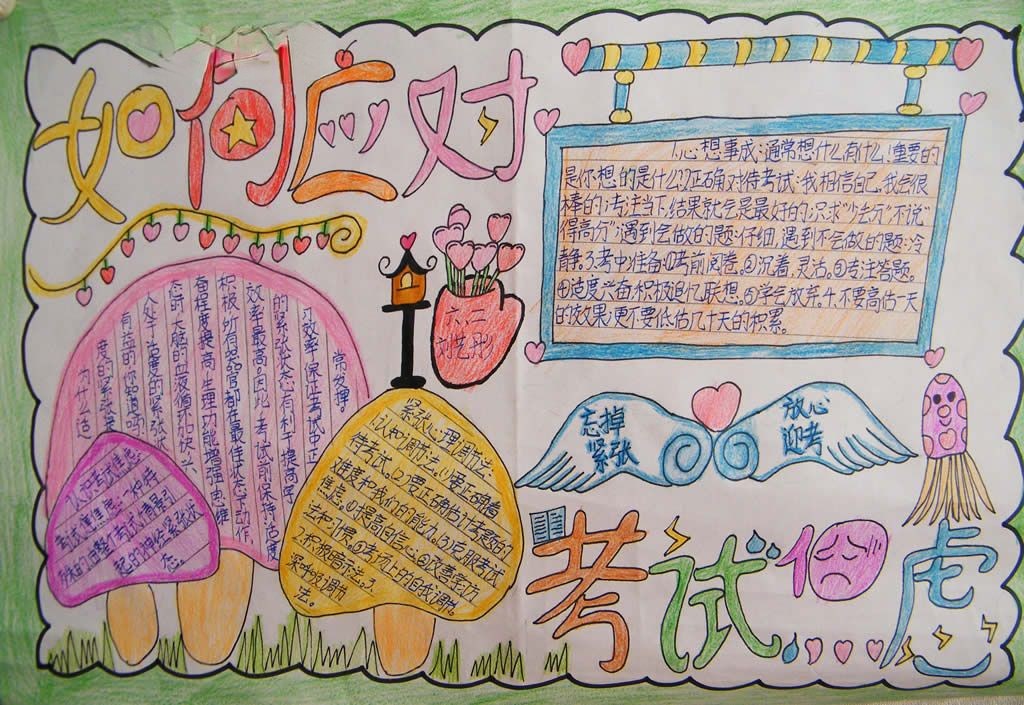 如何应对
1.心想事成:通常想什么有什么,重要的
是你想的是什么?2.正确对待考试:我相信自己,我会很
棒的!专注当下,结果就会是最好的!只求“少丢分”不说“
得高分”遇到会做的题:仔细,遇到不会做的题:冷
静。3.考中准备:①考前阅卷。②沉着,灵活。③专注答题。
④适度兴奋,积极追忆联想。⑤学会放弃。4.不要高估一天
的效果,更不要低估几十天的积累。
六、二
刘艺彤
为什么适
度的紧张是
有益的你知道吗?
人处于适度的紧张状
态时,大脑的血液循环加快,兴
奋程度提高,生理功能增强,思维
积极,所有器官都在最佳状态下动作,
效率最高。因此,考试前保持适度
的紧张状态有利于提高学
习效率,保证考试中正
常发挥。
认识考试焦虑:
考试焦虑是一种特
殊的由整个考试情景引
起的神经紧张状
态。
紧张心理调节法:
1.认知调节法。(1)要正确看
待考试。(2)要正确估计考题的
难度和我们的能力。③克服考试
焦急。④提高自信心。⑤改善学习方
法和习惯。⑥考场上的自我调节。
2.积极暗示法。3.
深呼吸调节
法。
忘掉
紧张
放心
迎考
考试
虑